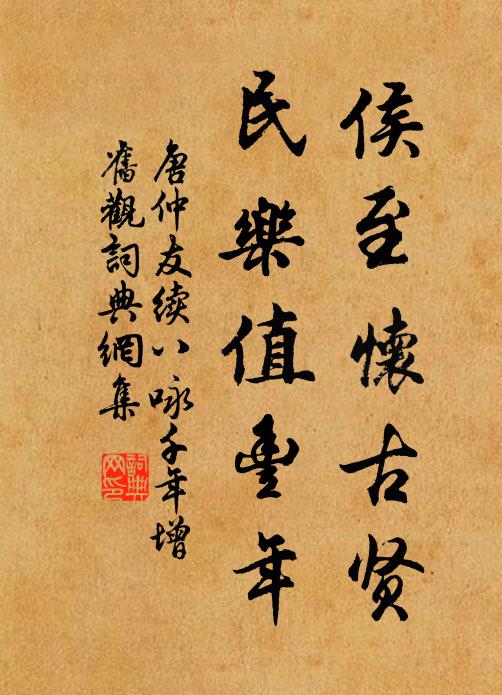 侯至懷古贤
民樂值豊年
唐仲友续八咏千年增
舊觀詞典網集
詞典
网印